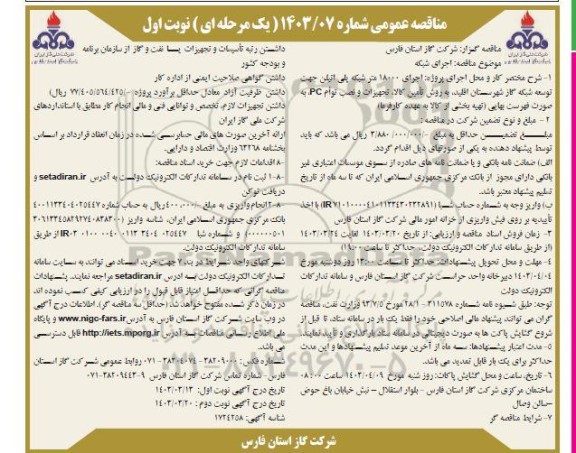 مناقصه عمومی شماره ۱۴۰۳/۰۷ ( یک مرحله ای ) نوبت اول
مناقصه گزار: شرکت گاز استان فارس
موضوع مناقصه: اجرای شبکه
۱- شرح مختصر کار و محل اجرای پروژه: اجرای ۱۸۰۰۰ متر شبکه پلی اتیلن جهت
توسعه شبکه گاز شهرستان اقلید، به روش تامین کالا، تجهیزات و نصب توام PC، به
صورت فهرست بهایی (تهیه بخشی از کالا به عهده کارفرما)
۲ - مبلغ و نوع تضمین شرکت در مناقصه:
مبلغ تضمین حداقل به مبلغ ۳/۸۸۰/۰۰۰/۰۰۰ ریال می باشد که باید
توسط پیشنهاد دهنده به یکی از صورتهای ذیل اقدام گردد.
الف) ضمانت نامه بانکی و یا ضمانت نامه های صادره از سوی موسسات اعتباری غیر
بانکی دارای مجوز از بانک مرکزی جمهوری اسلامی ایران که تا سه ماه از تاریخ
تسلیم پیشنهاد معتبر باشد.
ب) واریز وجه به شماره حساب شبا با اخذ
تأییدیه بر روی فیش واریزی از خزانه امور مالی شرکت گاز استان فارس
۳- زمان فروش اسناد مناقصه و ارزیابی: از تاریخ ۱۴۰۳/۰۳/۲۰ لغایت ۱۴۰۳/۰۳/۲۴
(از طریق سامانه تدارکات الکترونیک دولت- حداکثر تا ساعت ۱۹:۰۰)
۴- مهلت و محل تحویل پیشنهادات: حداکثر تا ساعت ۱۳:۰۰ روز دوشنبه مورخ
۱۴۰۳/۰۴/۰۴ دبیرخانه واحد حراست شرکت گاز استان فارس و سامانه تدارکات
الکترونیک دولت
توجه: طبق شیوه نامه شماره وزارت نفت، مناقصه
گران می توانند پیشنهاد مالی اصلاحی خود را فقط یک بار در سامانه ستاد، تا قبل از
شروع گشایش پاکت ها به صورت دیجیتالی در سامانه ستاد بارگذاری و تأیید نمایند.
۵-مدت اعتبار پیشنهادها: سه ماه از آخرین موعد، تسلیم پیشنهادها و این مدت
حداکثر برای یک بار قابل تمدید می باشد.
۶- تاریخ، ساعت و محل گشایش پاکات: روز شنبه مورخ ۱۴۰۳/۰۴/۰۹ ساعت ۰۸:۰۰
ساختمان مرکزی شرکت گاز استان فارس - بلوار استقلال - نبش خیابان باغ حوض
-سالن وصال
۷- شرایط مناقصه گر
داشتن رتبه تأسیسات و تجهیزات یا نفت و گاز از سازمان برنامه
و بودجه کشور
داشتن گواهی صلاحیت ایمنی از اداره کار
داشتن ظرفیت آزاد معادل حداقل برآورد پروژه (۷۷/۴۰۵/۵۶۴/۴۲۵ ریال)
داشتن تجهیزات لازم، تخصص و توانایی فنی و مالی انجام کار مطابق با استانداردهای
شرکت ملی گاز ایران
ارائه آخرین صورت های مالی حسابرسی شده در زمان انعقاد قرارداد بر اساس
بخشنامه ۶۳۲۶۸ وزارت اقتصاد و دارایی.
۸-اقدامات لازم جهت خرید اسناد مناقصه:
۸-۱ ثبت نام در سامانه تدارکات الکترونیک دولت به آدرس setadiran.ir و
دریافت توکن
۸-۲ انجام واریزی به مبلغ ۴۰۰/۰۰۰ ریال به حساب شماره
بانک مرکزی جمهوری اسلامی ایران، شناسه واریز
و شماره شبا از طریق
سامانه تدارکات الکترونیک دولت.
شرکتهای واجد شرایط در بند ۷ جهت خرید اسناد می توانند به سایت سامانه
تدارکات الکترونیک دولت به آدرس setadiran.ir مراجعه نمایند. پیشنهادات
مناقصه گرانی که حداقل امتیاز قابل قبول را در ارزیابی کیفی کسب نموده اند
در زمان ذکر شده مفتوح خواهد شد(حداقل سه مناقصه گر). اطلاعات درج آگهی
در وب سایت شرکت گاز استان فارس به آدرس www.nigc-fars.ir و پایگاه
ملی اطلاع رسانی مناقصات به آدرس http://iets.mporg.ir قابل دسترسی
می باشد.
شماره فکس: روابط عمومی شرکت گاز استان
فارس- شماره تماس شرکت گاز استان فارس
تاریخ درج آگهی نوبت اول: ۱۴۰۳/۰۳/۱۳
تاریخ درج آگهی نوبت دوم : ۱۴۰۳/۰۳/۲۰
شناسه آگهی: ۱۷۲۴۲۵۸
شرکت گاز استان فارس